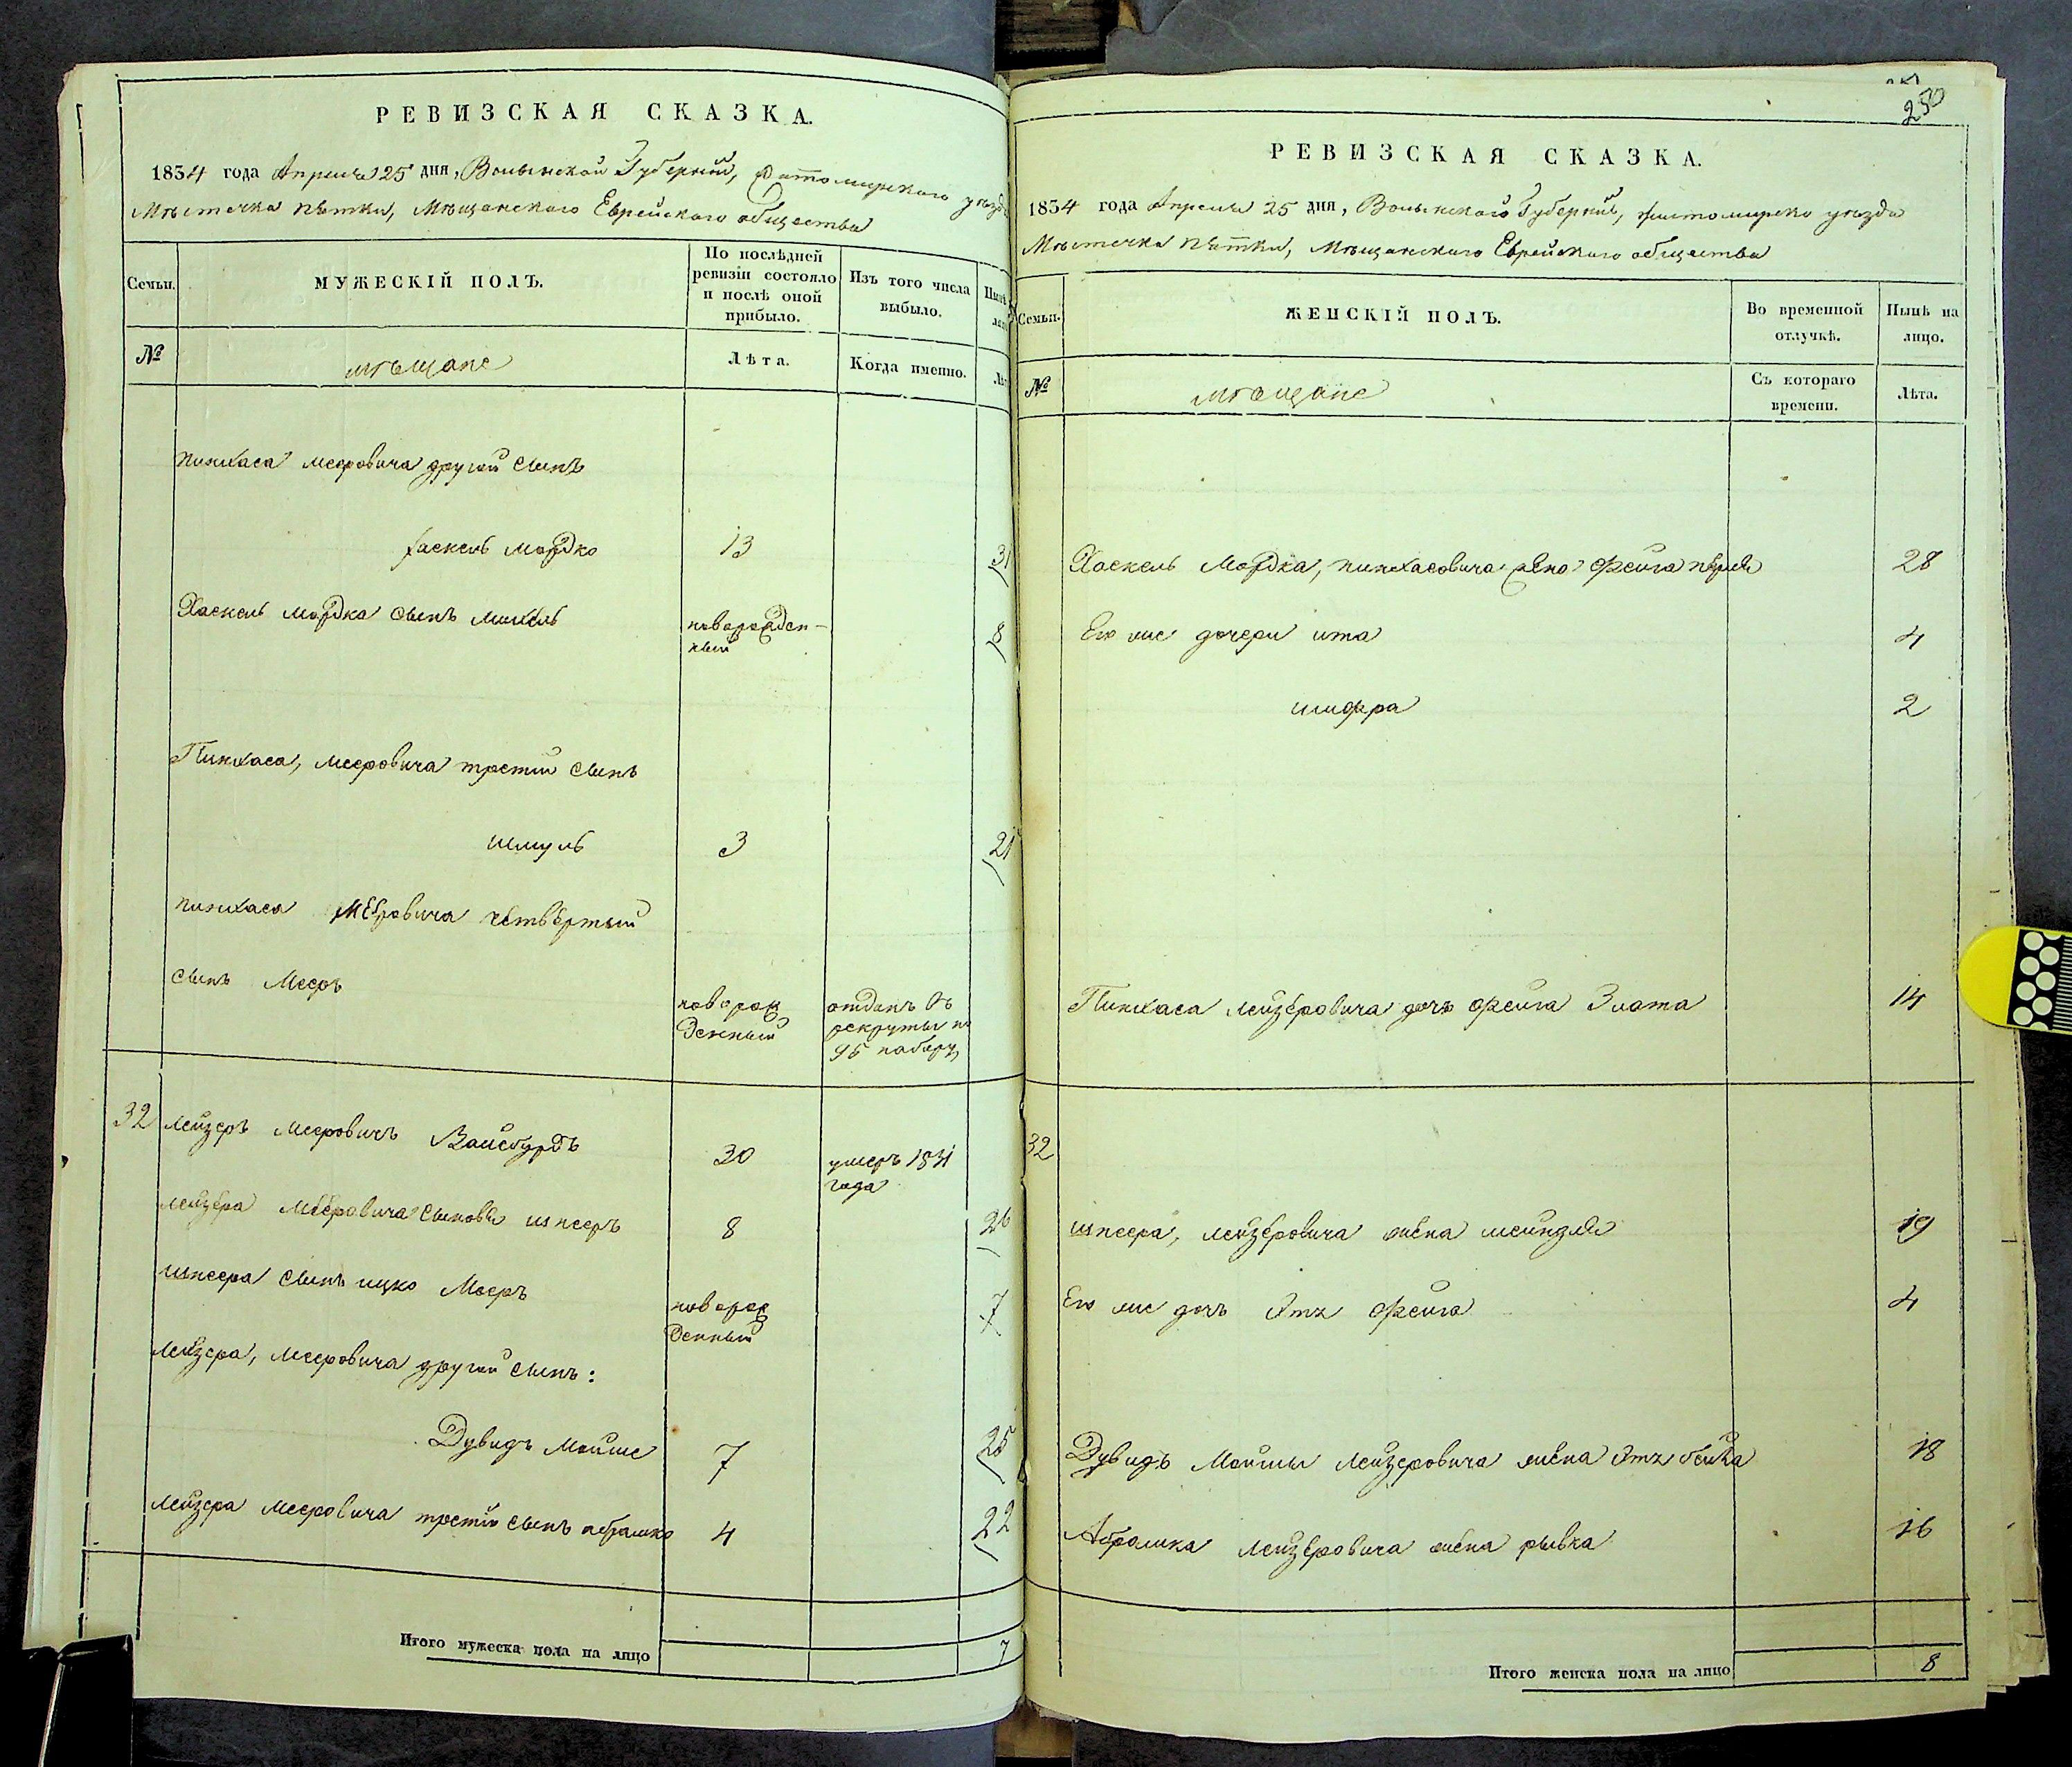 РЕВИЗСКАЯ СКАЗКА.
1834 года Апреля 25 дня, Волынской Губерніи, Житомирского уѣзда
Мѣстечка Пятки, Мѣщанского Еврейского общества
Семьи.
МУЖЕСКІЙ ПОЛЪ.
По послѣдней ревизіи состояло и послѣ оной прибыло.
Изъ того числа выбыло.
№
мѣщане
Лѣта.
Когда именно.
пинхаса мееровича другой сынъ
хаскель мордко 13 31
Хаскель мордка сынъ михель новорожден-
ный 8
Пинхаса, мееровича третій сынъ
шмуль 3 21
пинхаса Мееровича четвертый
сынъ Мееръ новорож
денный отданъ въ
рекруты по
95 набору
32 лейзеръ мееровичъ Вайсбурдъ 30 умеръ 1831
года
лейзера мееровича сыновья шпееръ 8 26
шпеера сынъ ицко Мееръ новорож
денный 7
лейзера, мееровича другой сынъ:
Дувидъ Мойше 7 25
лейзера мееровича третій сынъ абрамко 4 22
Итого мужеска пола на лицо 7
250
РЕВИЗСКАЯ СКАЗКА.
1834 года Апреля 25 дня, Волынского Губерніи, житомирско уѣзда
Мѣстечка Пятки, Мѣщанского Еврейского общества
Семьи.
ЖЕНСКІЙ ПОЛЪ.
Во временной отлучкѣ.
Нынѣ на лицо.
№
мѣщане
Съ котораго времени.
Лѣта.
Хаскель Мордка, пинхасовича жена Фейга перля 28
Его же дочери ита 4
шифра 2
Пинхаса лейзеровича дочь Фейга Злата 14
32
шпеера, лейзеровича жена мейндля 19
Его же дочь Этя Фейга 4
Дувидъ Мойшы Лейзеровича жена Этя бейла 18
Абрамка лейзеровича жена рывка 16
Итого женска пола на лицо 8